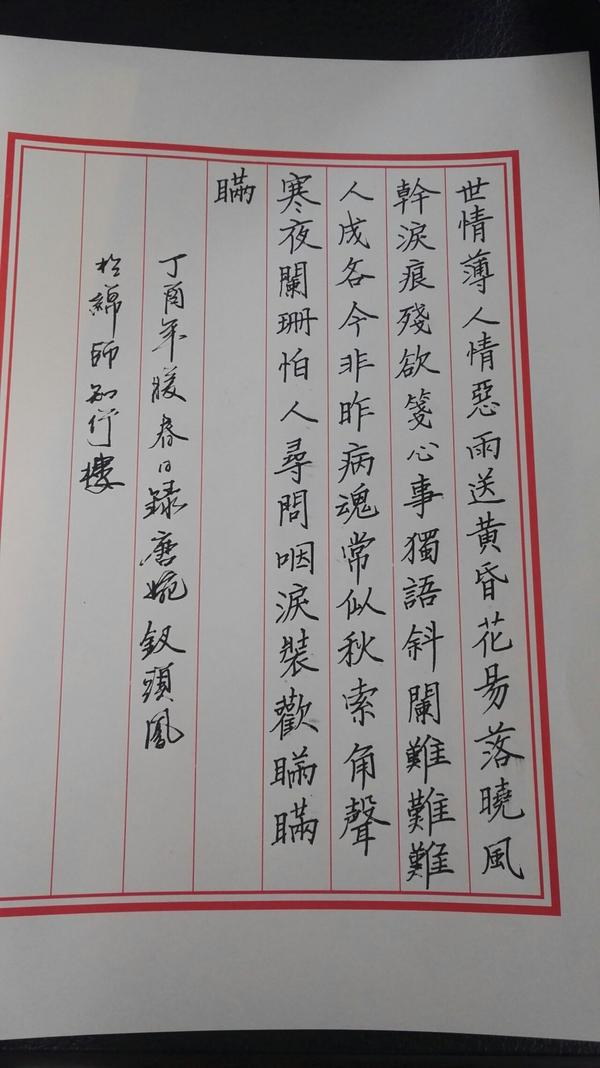 世情薄人情惡雨送黄昏花易落曉風
幹淚痕殘欲箋心事獨語斜闌難難難
人成各今非昨病魂常似秋索角聲
寒夜闌珊怕人尋問咽淚裝歡瞞瞞
瞞
丁酉年暖春日録唐婉釵頭鳳
於綿師知行樓